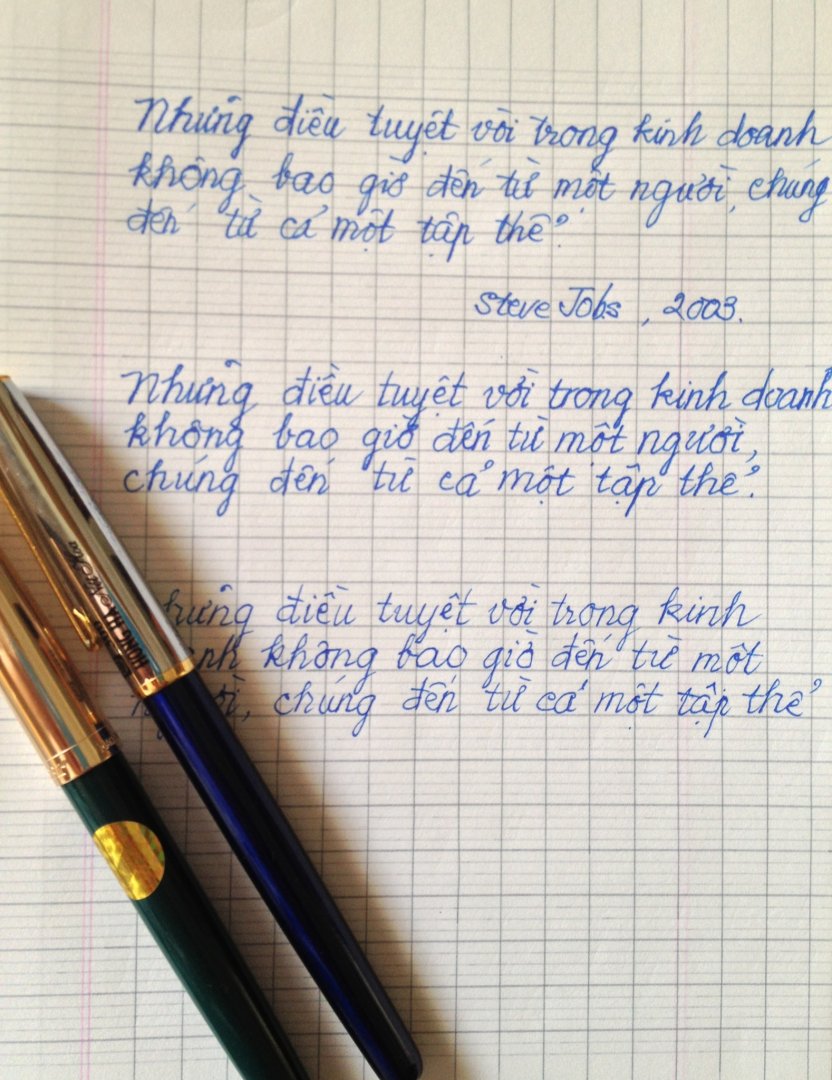 Những điều tuyệt vời trong kinh doanh
không bao giờ đến từ một người, chúng
đến từ cả một tập thể.
Steve Jobs, 2003.
Những điều tuyệt vời trong kinh doanh
không bao giờ đến từ một người,
chúng đến từ cả một tập thể.
điều tuyệt vời trong kinh
không bao giờ đến từ một
chúng đến từ cả một tập thể
HỒNG HÀ